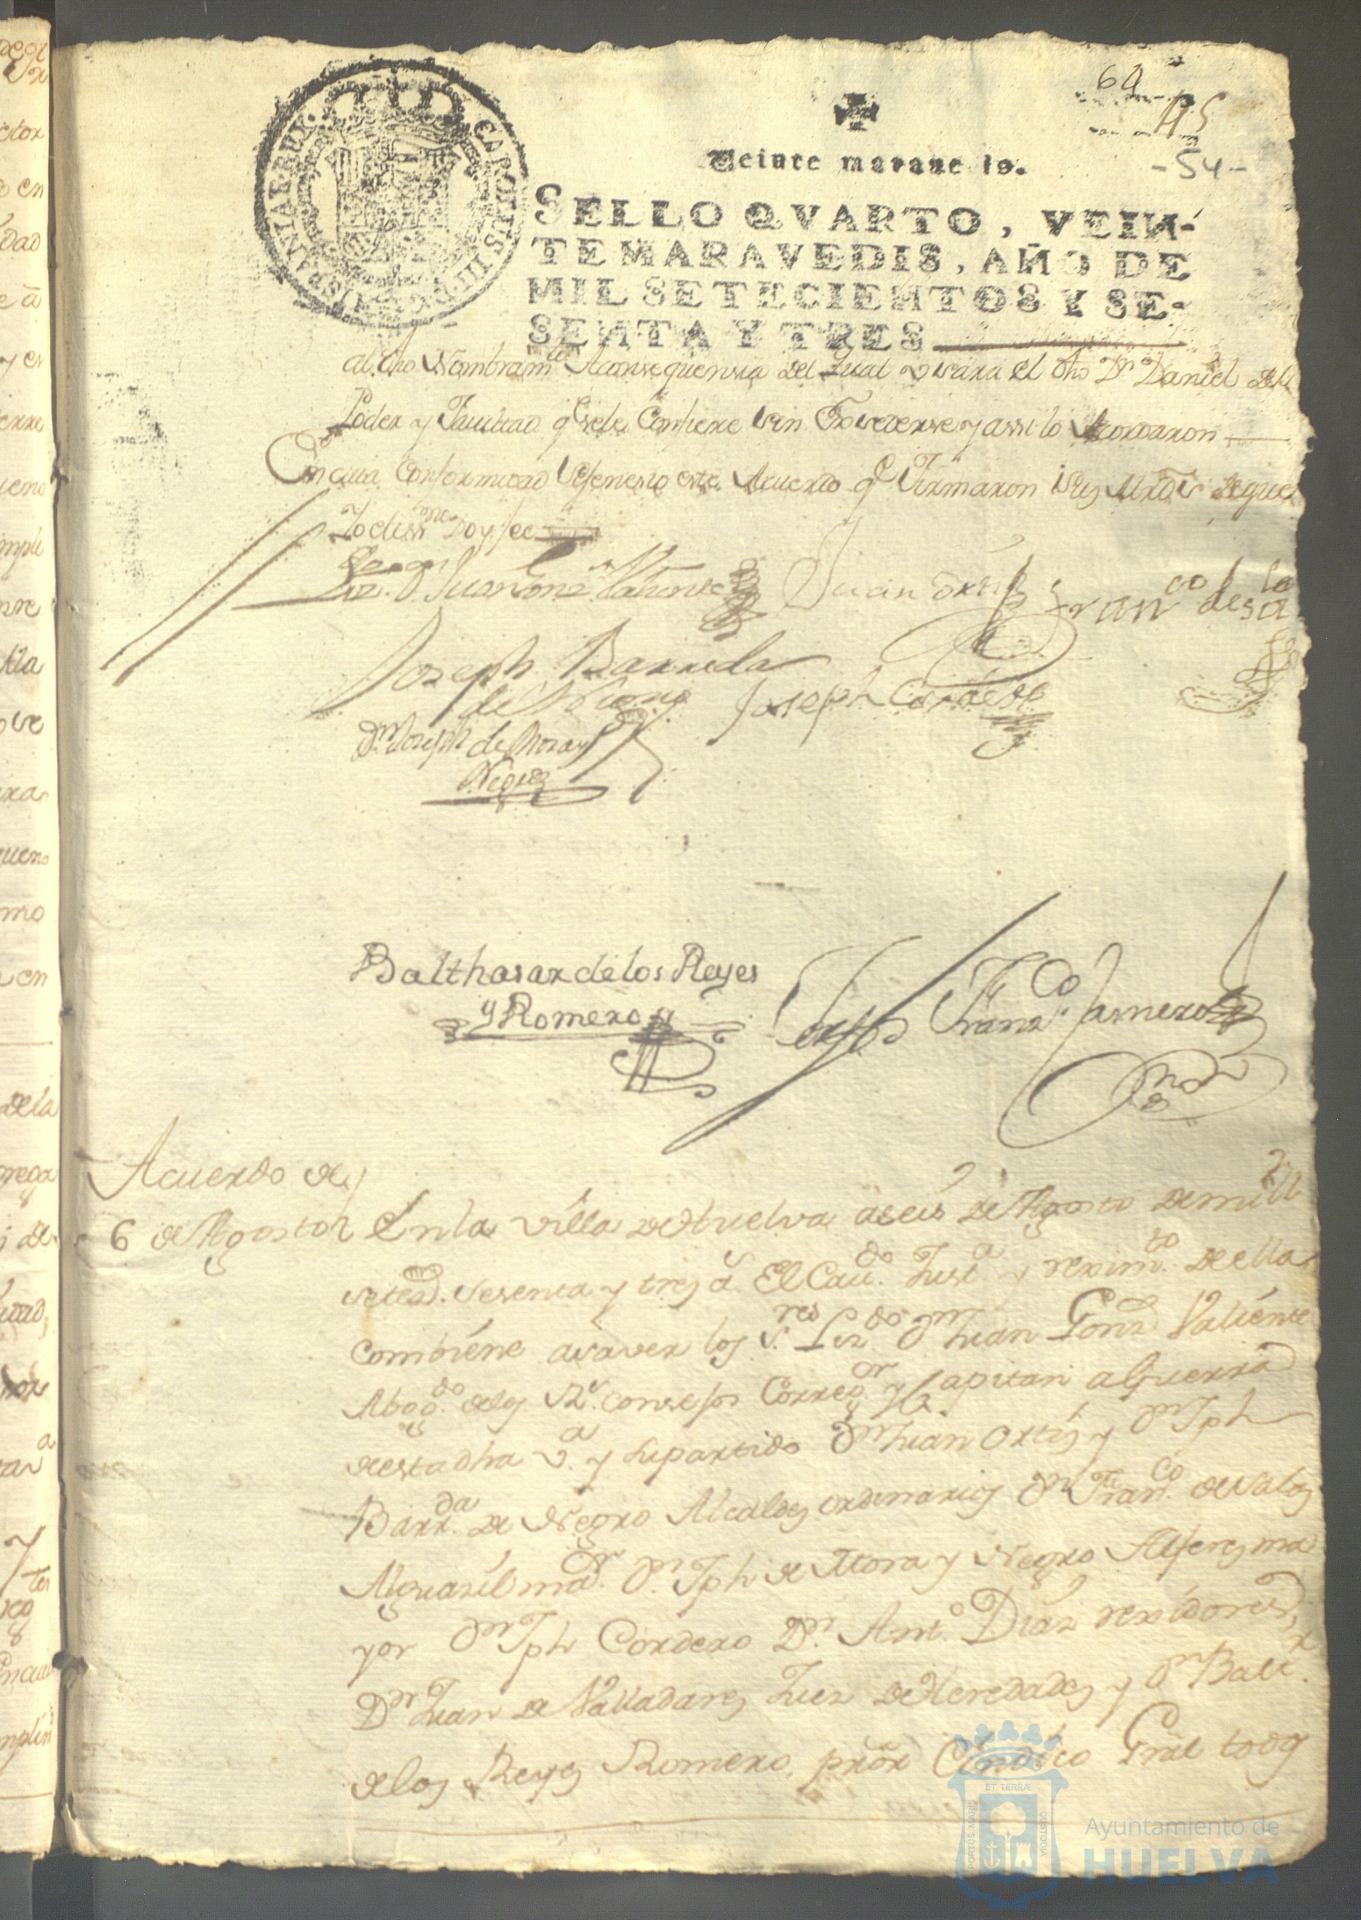 60
45
-54-
CAROLUS III D G HISPANIAR REX
Veinte maravedis.
SELLO QVARTO, VEIN-
TE MARAVEDIS, AÑO DE
MIL SETECIENTOS Y SE-
SENTA Y TRES
al dho Nombram.to A consequensia del qual usara el dho Dn Daniel del
Poder y facultad q se le Confiere sin Exsederse y assi lo Acordaron
En cuia Conformidad se fenesio este Acuerdo q.e firmaron sus Mrds de que
Yo el ess.no Doy fee
Liz.do D. Juan Gonz. Valiente
Juan Ortis
Fran.co de sa
Joseph Barreda
de Negro
Joseph Cordero
Dn Joseph de Mora y
Negro
Balthasar de los Reyes
y Romero
Fran.co
Acuerdo de
6 de Agosto
En la villa de Huelva a seis de Agosto de mill
setez.s sesenta y tres a.s El Cau.do Just.a y reximto de ella
combiene a saver los S.res Liz.do Dn Juan Gonz Valiente
Abog.do de los R.s consejos Correg.or y Capitan a Guerra
de esta dha V.a y su partido Dn Juan Ortis y Dn Jph
Barr.da de Negro Alcaldes ordinarios Dn Fran.co de
Alguasil ma.or Dn Jph de Mora y Negro Alferes ma
yor Dn Jph Cordero Dn Ant.o Dias rexidores,
Dn Juan de Valladares Juez de Heredades y Dn Balt.r
de los Reyes Romero, pror Cindico Gral todos
ET TERRÆ
PORTUS MARIS
CUSTODIA
Ayuntamiento de
HUELVA